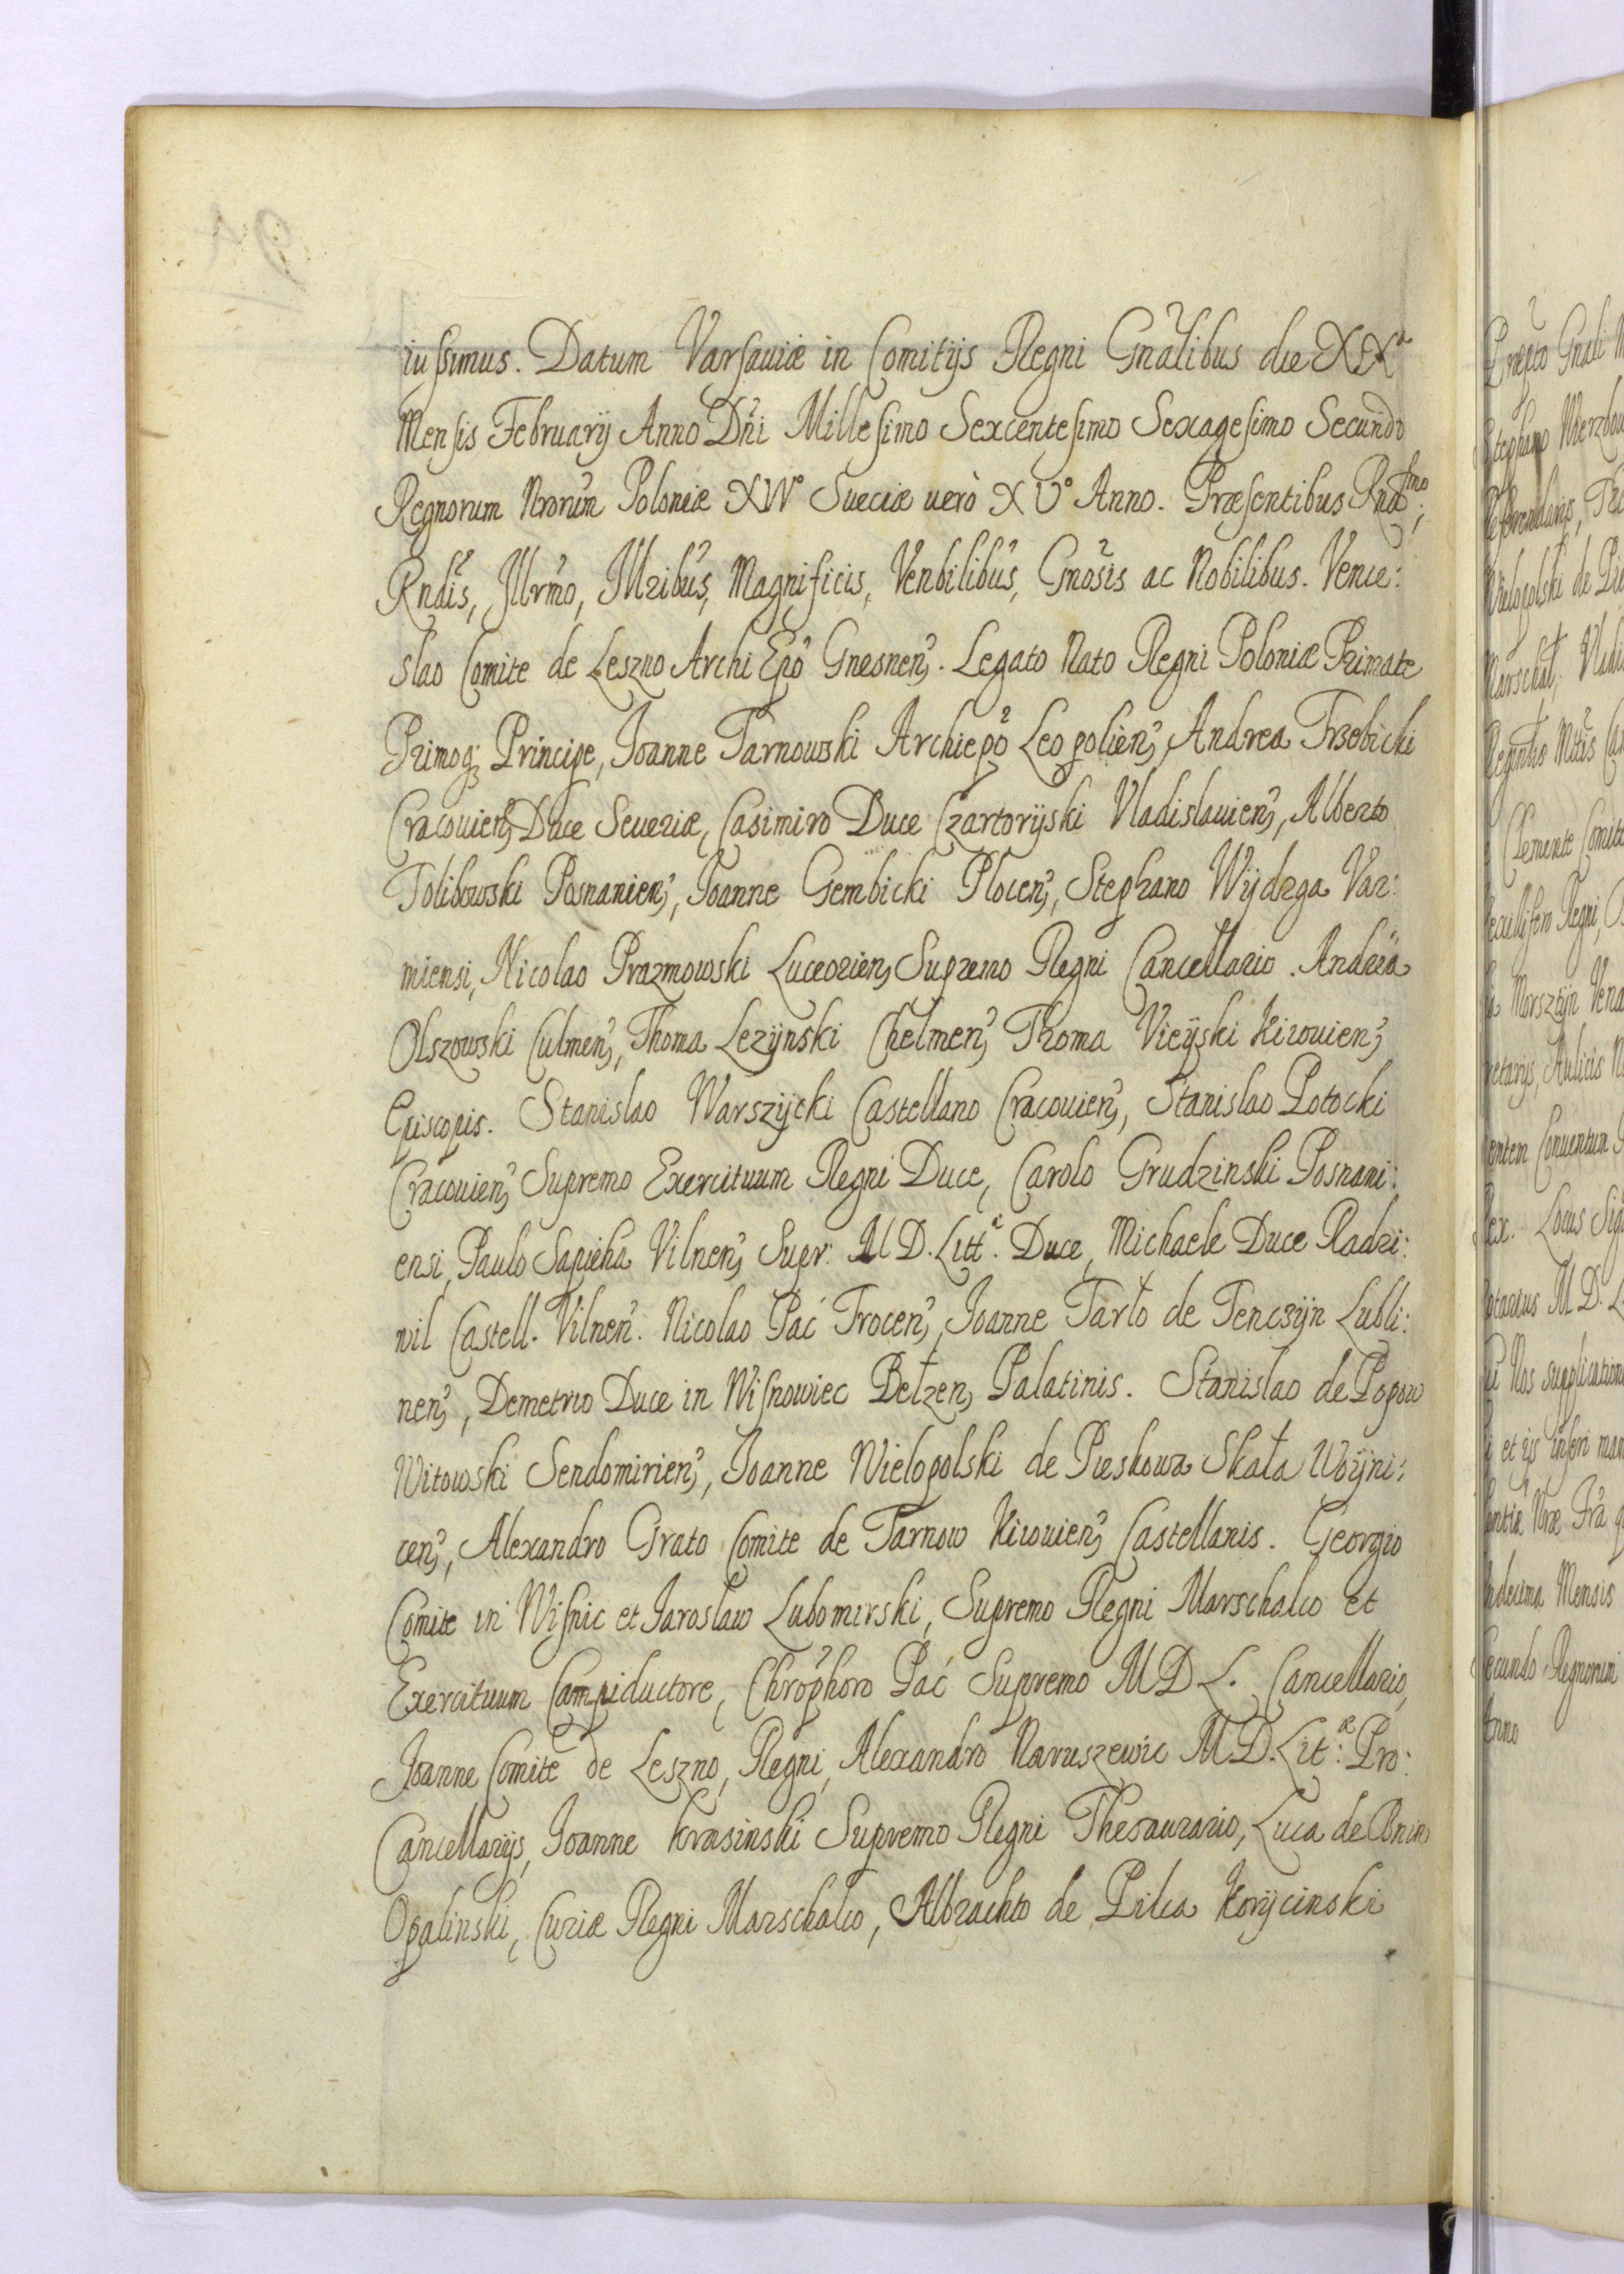 iussimus. Datum Varsaviæ in Comitijs Regni Gnãlibus die XXa
Mensis Februarij Anno Dñi Millesimo Sexcentesimo Sexagesimo Secundo
Regnorum Nrorum Poloniæ XIVo Sueciæ uerò XVo Anno. Præsentibus Rndssmo;
Rndis, Illrmo, Illribus, Magnificis, Venbilibus, Gnosis ac Nobilibus. Vence:
slao Comite de Leszno Archi Epo Gnesnen. Legato Nato Regni Poloniæ Primate
Primoq; Principe, Joanne Tarnowski Archiepo Leopolien, Andrea Trzebicki
Cracouien, Duce Seueriæ, Casimiro Duce Czartoryiski Vladislauien, Alberto
Tolibowski Posnanien, Joanne Gembicki Plocen, Stephano Wijdzga Var:
miensi, Nicolao Prazmowski Luceorien, Supremo Regni Cancellario. Andrea
Olszowski Culmen, Thoma Lezijnski Chelmen, Thoma Vieijski Kiouien,
Episcopis. Stanislao Warszijcki Castellano Cracouien, Stanislao Potocki
Cracouien, Supremo Exercituum Regni Duce, Carolo Grudzinski Posnani:
ensi, Paulo Sapieha Vilnen, Supr: M D. Litt. Duce, Michaele Duce Radzi:
wil Castell. Vilnen. Nicolao Pać Trocen, Joanne Tarło de Tenczijn Lubli:
nen, Demetrio Duce in Wisnowiec Bełzen, Palatinis. Stanislao de Popow
Witowski Sendomirien, Joanne Wielopolski de Pieskowa Skała Woijni:
cen, Alexandro Grato Comite de Tarnow Kiouien, Castellanis. Georgio
Comite in Wisnic et Jaroslaw Lubomirski, Supremo Regni Marschalco et
Exercituum Campiductore, Chrophoro Pać Supremo M D L. Cancellario,
Joanne Comite de Leszno, Regni, Alexandro Naruszewic M. D. Lit:æ Pro:
Cancellarijs, Joanne Krasinski Supremo Regni Thesaurario, Luca de Bnin
Opalinski, Curiæ Regni Marschalco, Albrachto de Pilca Korijcinski